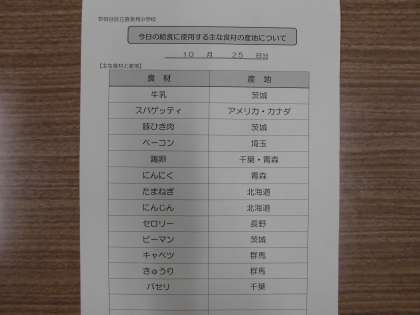 今日の給食に使用する主な食材の産地について
10 月 25 日分
【主な食材と産地】
食 材 産 地
牛乳 茨城
スパゲッティ アメリカ・カナダ
豚ひき肉 茨城
ベーコン 埼玉
鶏卵 千葉・青森
にんにく 青森
たまねぎ 北海道
にんじん 北海道
セロリー 長野
ピーマン 茨城
キャベツ 群馬
きゅうり 群馬
パセリ 千葉